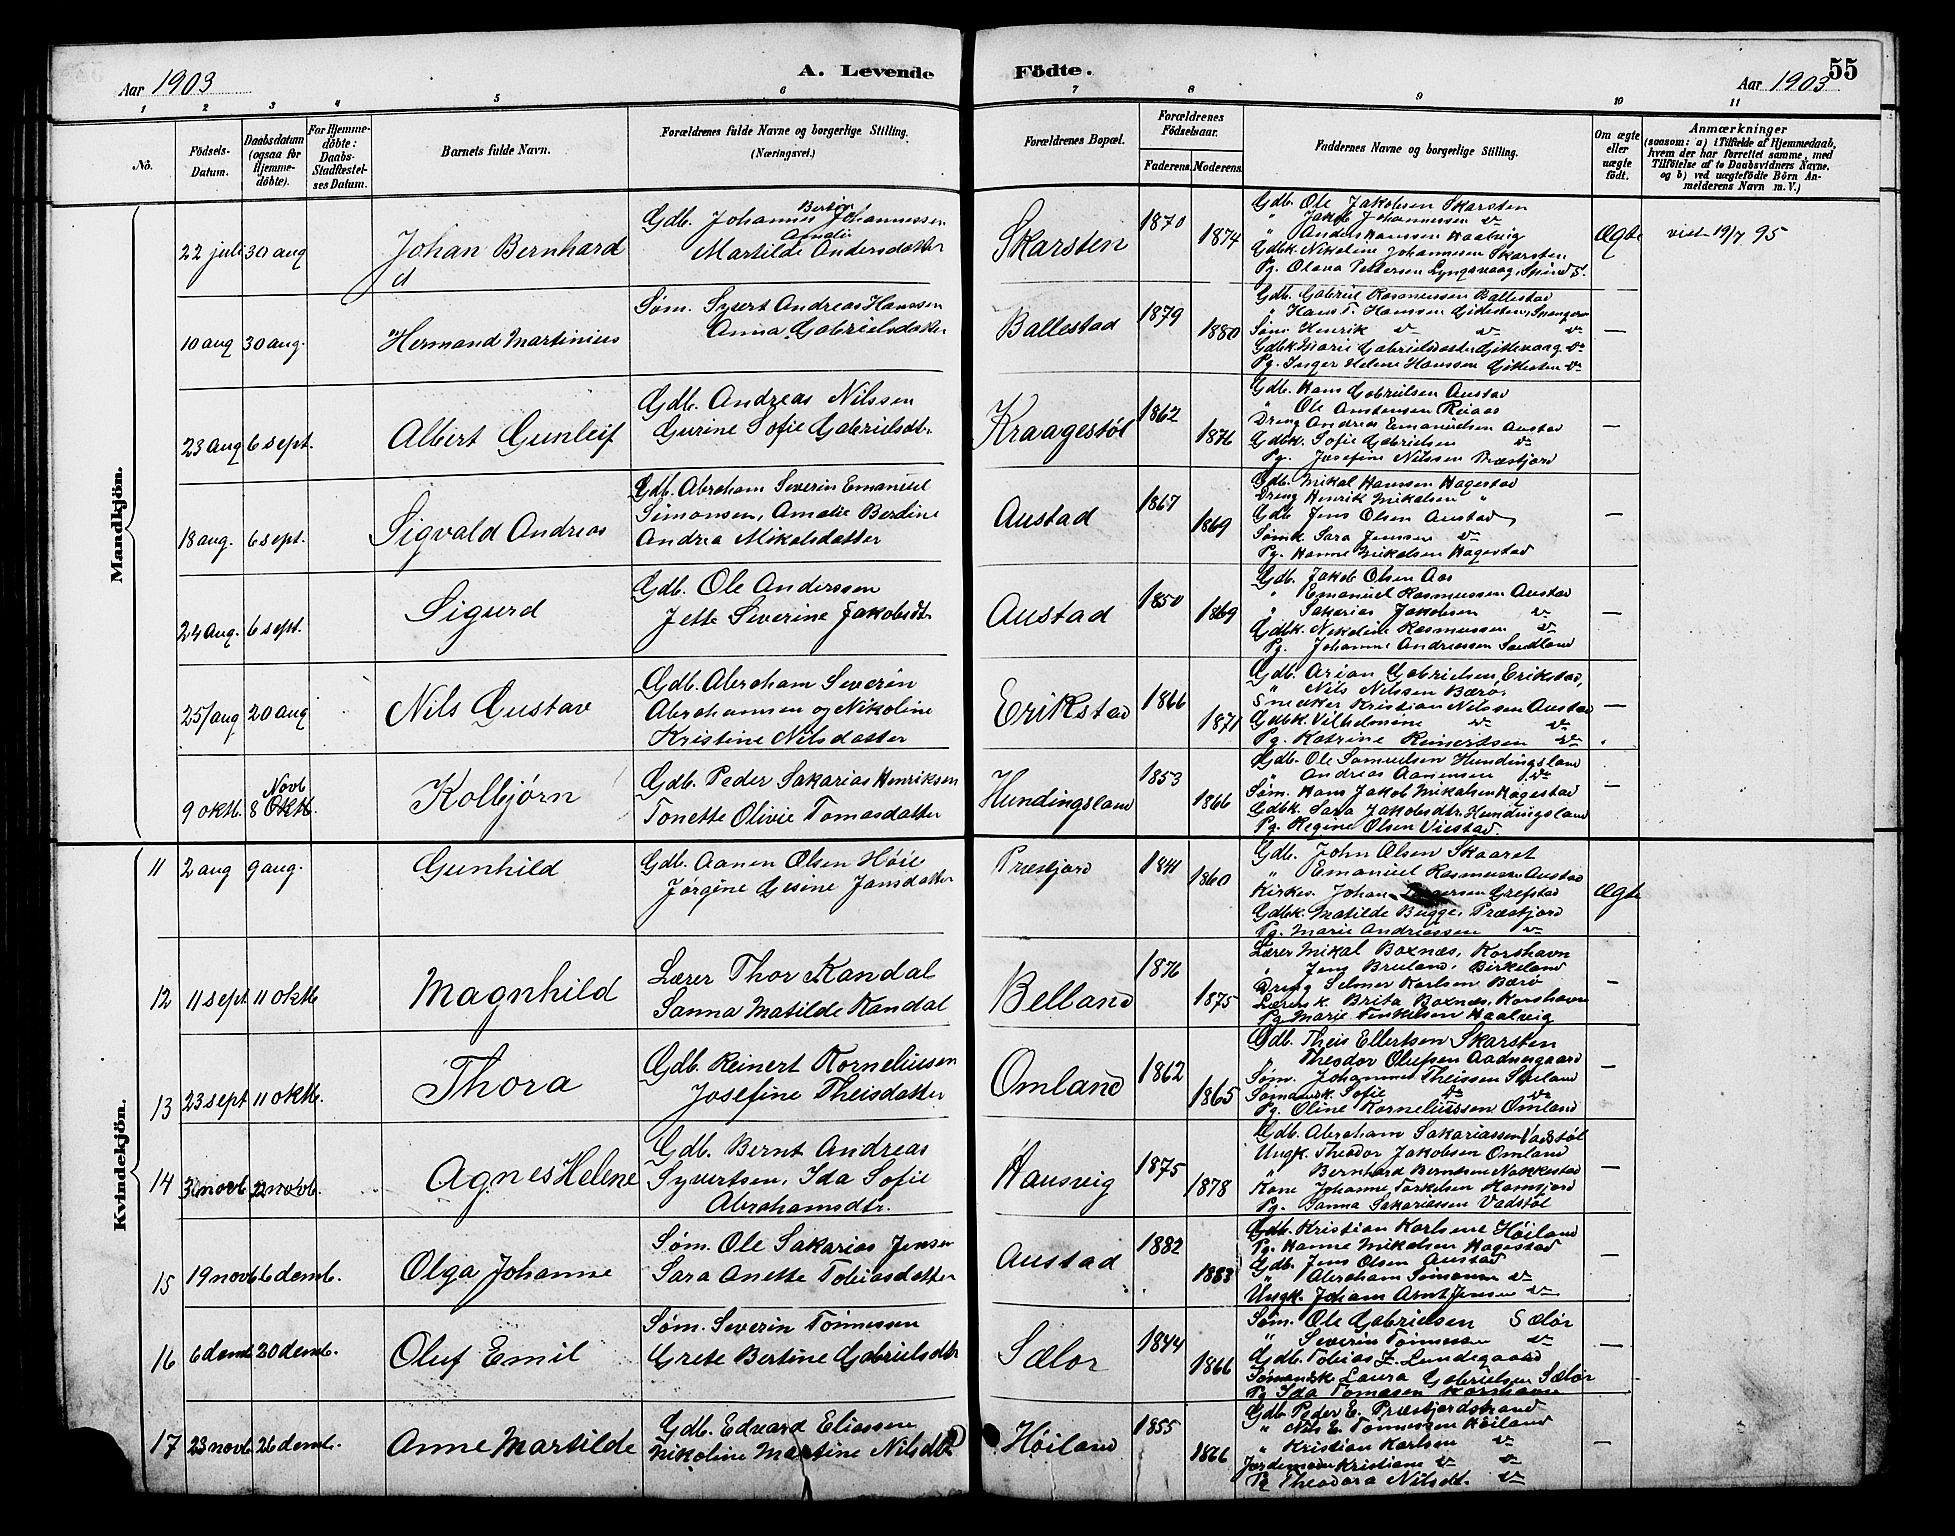 Aar 1903
A. Levende
Födte.
Aar 1903
55
1 2 3 4 5 6 7 8 9 10 11
No.
Födsels-Datum.
Daabsdatum (ogsaa for Hjemmedöbte).
For Hjemmedöbte: Daabs-Stadfæstelses Datum.
Barnets fulde Navn.
Forældrenes fulde Navne og borgerlige Stilling. (Næringsvei.)
Forældrenes Bopæl.
Forældrenes Födselsaar.
Faderens. Moderens.
Faddernes Navne og borgerlige Stilling.
Om ægte eller uægte født.
Anmærkninger
(saasom: a) i Tilfælde af Hjemmedaab,
hvem der har forrettet samme, med
Tilföielse af to Daabsvidners Navne,
og b) ved uægtefödte Börn An-
melderens Navn m. V.)
Mandkjön.
22 juli 30 aug
Johan Bernhard
Gdb. Johannes Bertin Johannessen
Amalie
Martilde Andersdatter
Skarsten
1870
1874
Gdb. Ole Jakobsen Skarsten
" Jakob Johannessen do
" Anders Hanssen Haalvig
Gdbk. Nikoline Johannessen Skarsten
Pg. Olava Pedersen Lyngsvaag, Spind S.
Ægte
viet 19/7 95
10 aug 30 aug.
Hermand Martinius
Søm. Syvert Andreas Hanssen
Anna Gabrielsdatter
Ballestad
1879
1880
Gdb. Gabriel Rasmussen Ballestad
" Hans T. Hanssen Gitlesten, Spangereid
Søm. Henrik do do do
Gdbk. Marie Gabrielsdatter Gittevaag do
Pg. Inger Helene Hanssen Gitlesten do
—
23 aug 6 sept.
Albert Gunleif
Gdb. Andreas Nilssen
Gurine Sofie Gabrielsdt.
Kraagestøl
1862
1876
Gdb. Hans Gabrielsen Austad
" Ole Anstensen Reiaas
Dreng Andreas Emanuelsen Austad
Gdbk. Sofie Gabrielsen do
Pg. Josefine Nilssen Præstjord
—
18 aug. 6 sept.
Sigvald Andreas
Gdb. Abraham Severin Emanuel
Simonsen, Amalie Berdine
Andrea Mikalsdatter
Austad
1867
1869
Gdb. Mikal Hanssen Hagestad
Dreng Henrik Mikalsen "
Gdb. Jens Olsen Austad
Sømk. Sara Jenssen do
Pg. Hanne Mikalsen Hagestad
—
24 aug. 6 sept.
Sigurd
Gdb. Ole Anderssen
Jette Severine Jakobsdt.
Austad
1850
1869
Gdb. Jakob Olsen Aas
" Emanuel Rasmussen Austad
" Sakarias Jakobsen do
Gdbk. Nikoline Rasmussen do
Pg. Johanne Andreassen Sandland
—
25/aug 20 aug
Nils Gustav
Gdb. Abraham Severin
Abrahamsen og Nikoline
Kristine Nilsdatter
Erikstad
1866
1871
Gdb. Arian Gabrielsen, Erikstad,
" Nils Nilssen Bærø
Snedker Kristian Nilssen Austad
Gdbk. Vilhelmine do do
Pg. Katrine Reinertsen do
—
Novb
9 oktb. 8 Oktb.
Kolbjørn
Gdb. Peder Sakarias Henriksen
Tonette Olivie Tomasdatter
Hundingsland
1853
1866
Gdb. Ole Samuelsen Hundingsland
" Andreas Aanensen do
Søm. Hans Jakob Mikalsen Hagestad
Gdbk. Sara Jakobsdtr. Hundingsland
Pg. Regine Olsen Viestad
—
Kvindekjön.
11 2 aug 9 aug.
Gunhild
Gdb. Aanen Olsen Høie
Jørgine Gesine Jansdatter
Præstjord
1841
1860
Gdb. John Olsen Skaaret
" Emanuel Rasmussen Austad
Kirkes. Johan Grefstad
Gdbk. Matilde Bugge, Præstjord
Pg. Marie Andreassen do
Ægte
12 11 sept 11 oktb
Magnhild
Lærer Thor Kandal
Sanna Matilde Kandal
Belland
1876
1875
Lærer Mikal Boxnæs, Korshavn
" Jens Breiland, Birkeland
Dreng Selmer Karlsen Bærø
Lærersk. Brita Boxnæs, Korshavn
Pg. Marie Terkelsen Haalvig
—
13 23 sept 11 oktb.
Thora
Gdb. Reinert Korneliussen
Josefine Theisdatter
Omland
1862
1865
Gdb. Theis Ellertsen Skarsten
" Theodor Olufsen Aadnesgaard
Søm. Johannes Theissen
Sømandsk. Sofie do do
Pg. Oline Korneliussen Omland
—
14 novb. 22 novb.
Agnes Helene
Gdb. Bernt Andreas
Syvertsen, Ida Sofie
Abrahamsdtr.
Hausvig
1875
1878
Gdb. Abraham Sakariassen Vadstøl
Ungk. Theodor Jakobsen Omland
" Bernhard Berntsen Nakkestad
Kone Johanne Torkelsen
Pg. Sanna Sakariassen Vadstøl
—
15 19 novb 6 decmb.
Olga Johanne
Søm. Ole Sakarias Jensen
Sara Anette Tobiasdatter
Austad
1882
1883
Gdb. Kristian Karlsen Høiland
Pg. Hanne Mikalsen Hagestad
Gdb. Jens Olsen Austad
" Abraham Simonsen do
Ungk. Johan Arnt Jensen do
—
16 6 decmb 20 decmb.
Oluf Emil
Søm. Severin Tønnessen
Grete Bertine Gabrielsdtr
Sælør
1844
1866
Søm. Ole Gabrielsen Sælør
" Severin Tønnessen do
Gdb. Tobias J. Lundegaard
Sømandsk. Laura Gabrielsen Sælør
Pg Ida Tomasen Korshavn
—
17 23 novb 26 decmb.
Anne Martilde
Gdb. Edvard Eliassen
Nikoline Martine Nilsdtr
Høiland
1855
1866
Gdb. Peder E. Præstjordstrand
" Nils E. Tønnessen Høiland
" Kristian Karlsen do
Jordemoder Kristiane do do
Pg Theodora Nilsdt. do
—